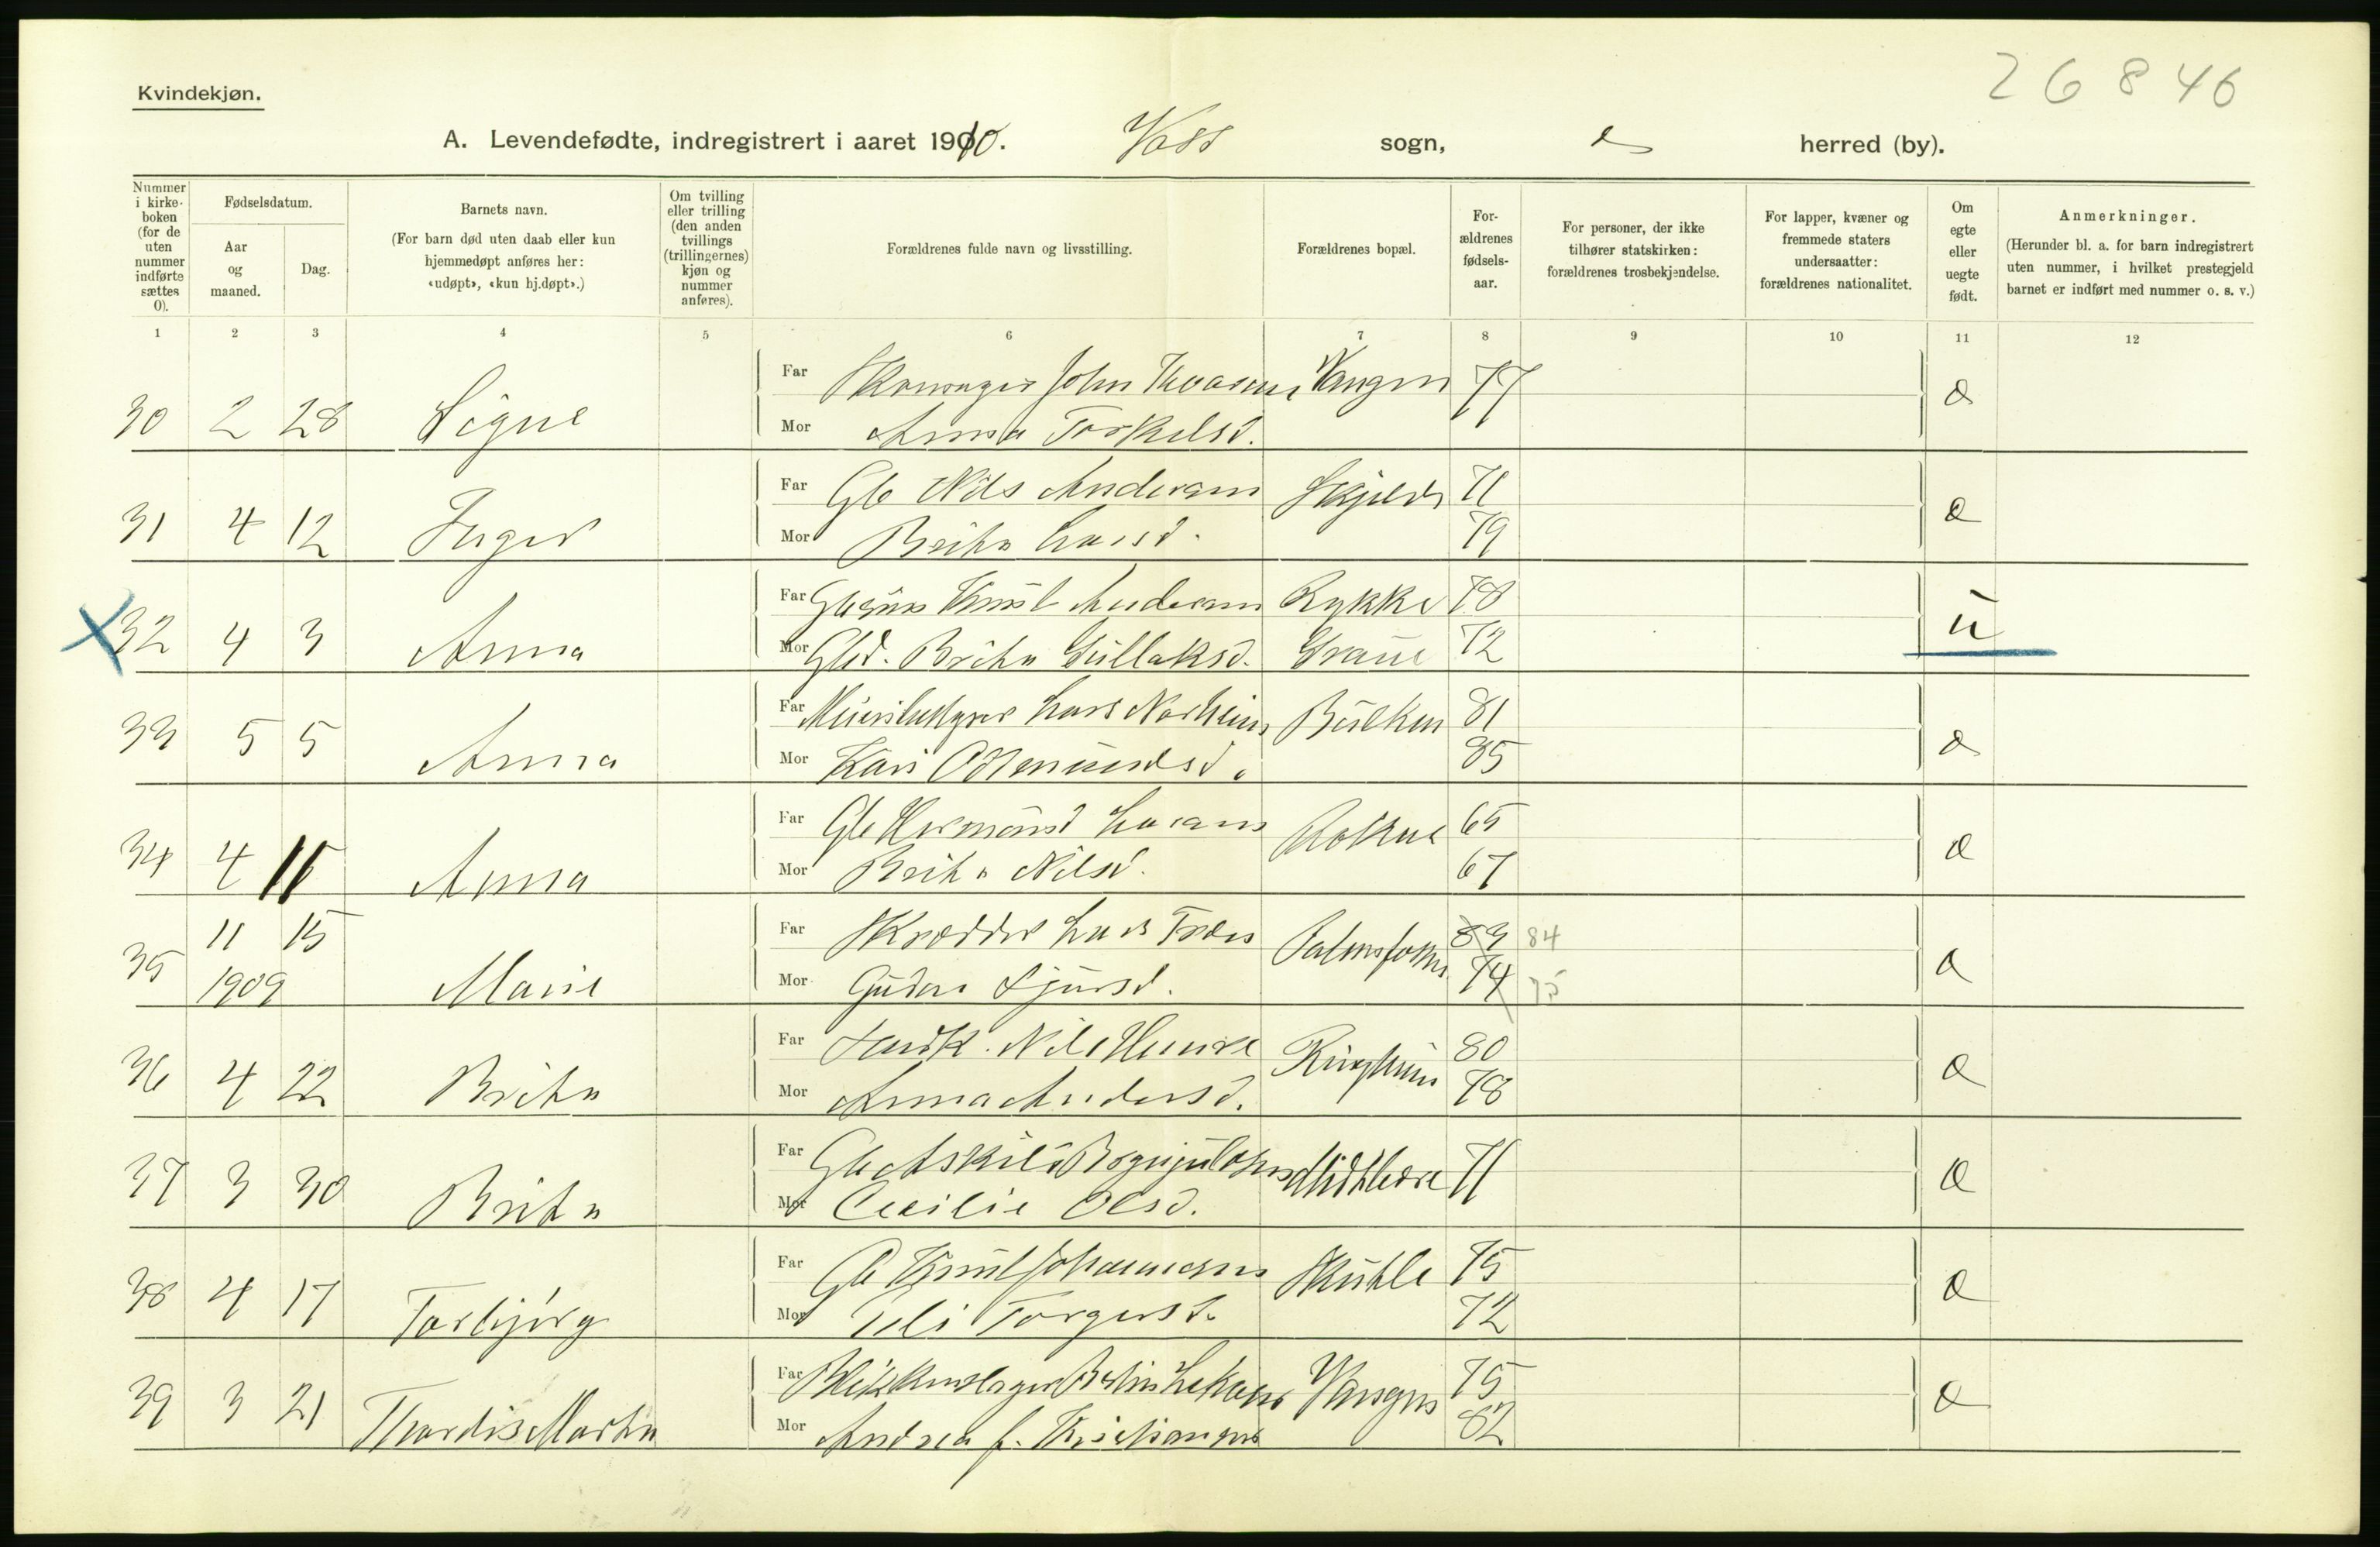 Kvindekjøn.
26846
A. Levendefødte, indregistrert i aaret 1910. Voss sogn, herred (by).
Nummer i kirkeboken (for de uten nummer indførte sættes 0).
Fødselsdatum.
Aar og maaned.
Dag.
Barnets navn.
(For barn død uten daab eller kun hjemmedøpt anføres her: «udøpt», «kun hj.døpt».)
Om tvilling eller trilling (den anden tvillings (trillingernes) kjøn og nummer anføres).
Forældrenes fulde navn og livsstilling.
Forældrenes bopæl.
Forældrenes fødselsaar.
For personer, der ikke tilhører statskirken: forældrenes trosbekjendelse.
For lapper, kvæner og fremmede staters undersaatter: forældrenes nationalitet.
Om egte eller uegte født.
Anmerkninger.
(Herunder bl. a. for barn indregistrert uten nummer, i hvilket prestegjeld barnet er indført med nummer o. s. v.)
1 2 3 4 5 6 7 8 9 10 11 12
Far John Vangen 77
30 2 28 Signe
Mor Anna Torkelsd.
Far Gb Nils Andersen 71
31 4 12 Inger
Mor Britha Larsd. 79
Far Knut Andersen Rykke 78
32 4 3 Anna ü
Mor Britha Gullaksd. Graue 72
Far Lars Norheim Bülken 81
33 5 5 Anna
Mor Kari Odmundsd. 85
Far Gb Hermund Larsen Rokne 65
34 4 11 Anna
Mor Britha Nilsd. 67
Far Skrædder Lars 83 84
35 11 15 1909 Marie
Mor Gudve Sjursd. 74 75
Far Nils Ringheim 80
36 4 22 Britha
Mor Anna Andersd. 78
Far Gb Askild Brynjulfsen 71
37 3 30 Britha
Mor Cecilie Olsd.
Far Gb Knut Johannesen Skutle 75
38 4 17 Torbjörg
Mor Torgersd. 72
Far Blikkenslager Vangen 75
39 3 21 Thordis Martha
Mor Andrea f. Kristiansen 82